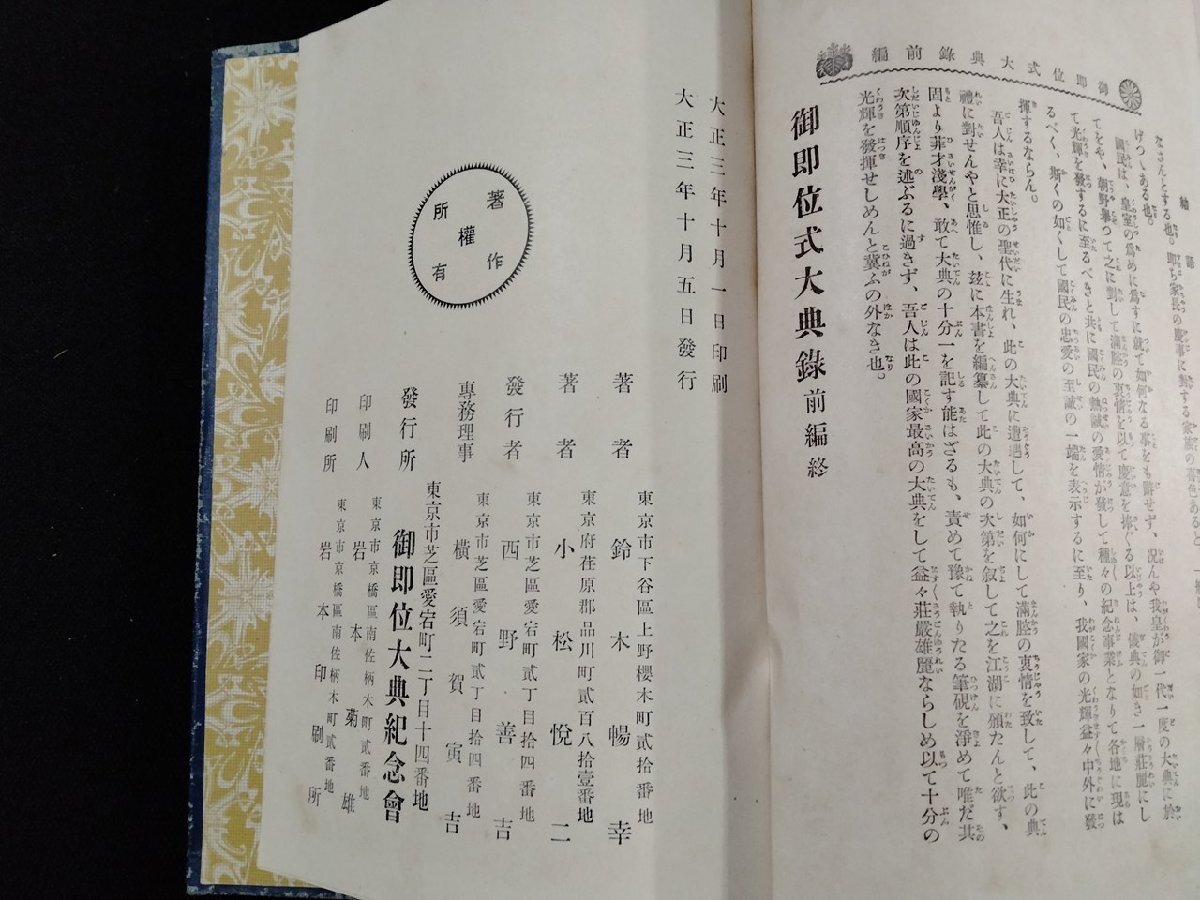 御即位式大典錄前編
なさんとする也。即ち家長の慶事に對する家族の
けつゝある也。
國民は、皇室の爲めに爲すに就て如何なる事をも辭せず、況んや我皇が御一代一度の大典に於
てをや、朝野擧つて之に對して滿腔の衷情を以て慶意を捧ぐる以上は、儀典の如き一層莊麗にし
て光輝を發するに至るべきと共に國民の熱誠の愛情が發して種々の紀念事業となりて各地に現は
るべく、斯くの如くして國民の忠愛の至誠の一端を表示するに至り、我國家の光輝益々中外に發
揮するならん。
吾人は幸に大正の聖代に生れ、此の大典に遭遇して、如何にして滿腔の衷情を致して、此の典
禮に對せんやと思惟し、玆に本書を編纂して此の大典の次第を叙して之を江湖に頒たんと欲す、
固より菲才淺學、敢て大典の十分一を記す能はざるも、責めて豫て執りたる筆硯を淨めて唯だ其
次第順序を述ぶるに過ぎず、吾人は此の國家最高の大典をして益々莊嚴雄麗ならしめ以て十分の
光輝を發揮せしめんと冀ふの外なき也。
御即位式大典錄前編終
大正三年十月一日印刷
大正三年十月五日發行
著作
權
所有
著者
東京市下谷區上野櫻木町貳拾番地
鈴木暢幸
著者
東京府荏原郡品川町貳百八拾壹番地
小松悅二
發行者
東京市芝區愛宕町貳丁目拾四番地
西野善吉
專務理事
東京市芝區愛宕町貳丁目拾四番地
橫須賀寅吉
發行所
東京市芝區愛宕町二丁目十四番地
御即位大典紀念會
印刷人
東京市京橋區南佐柄木町貳番地
岩本菊雄
印刷所
東京市京橋區南佐柄木町貳番地
岩本印刷所